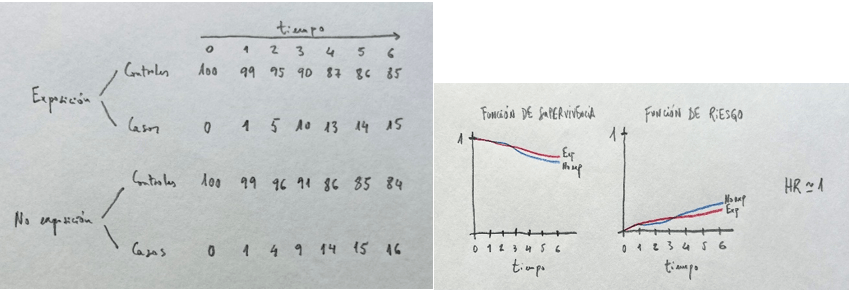 tiempo
0 1 2 3 4 5 6
Exposición
Controles 100 99 95 90 87 86 85
Casos 0 1 5 10 13 14 15
No exposición
Controles 100 99 96 91 86 85 84
Casos 0 1 4 9 14 15 16
FUNCIÓN DE SUPERVIVENCIA
1
Exp
No exp
0 1 2 3 4 5 6
tiempo
FUNCIÓN DE RIESGO
1
No exp
Exp
0 1 2 3 4 5 6
tiempo
HR ≃ 1